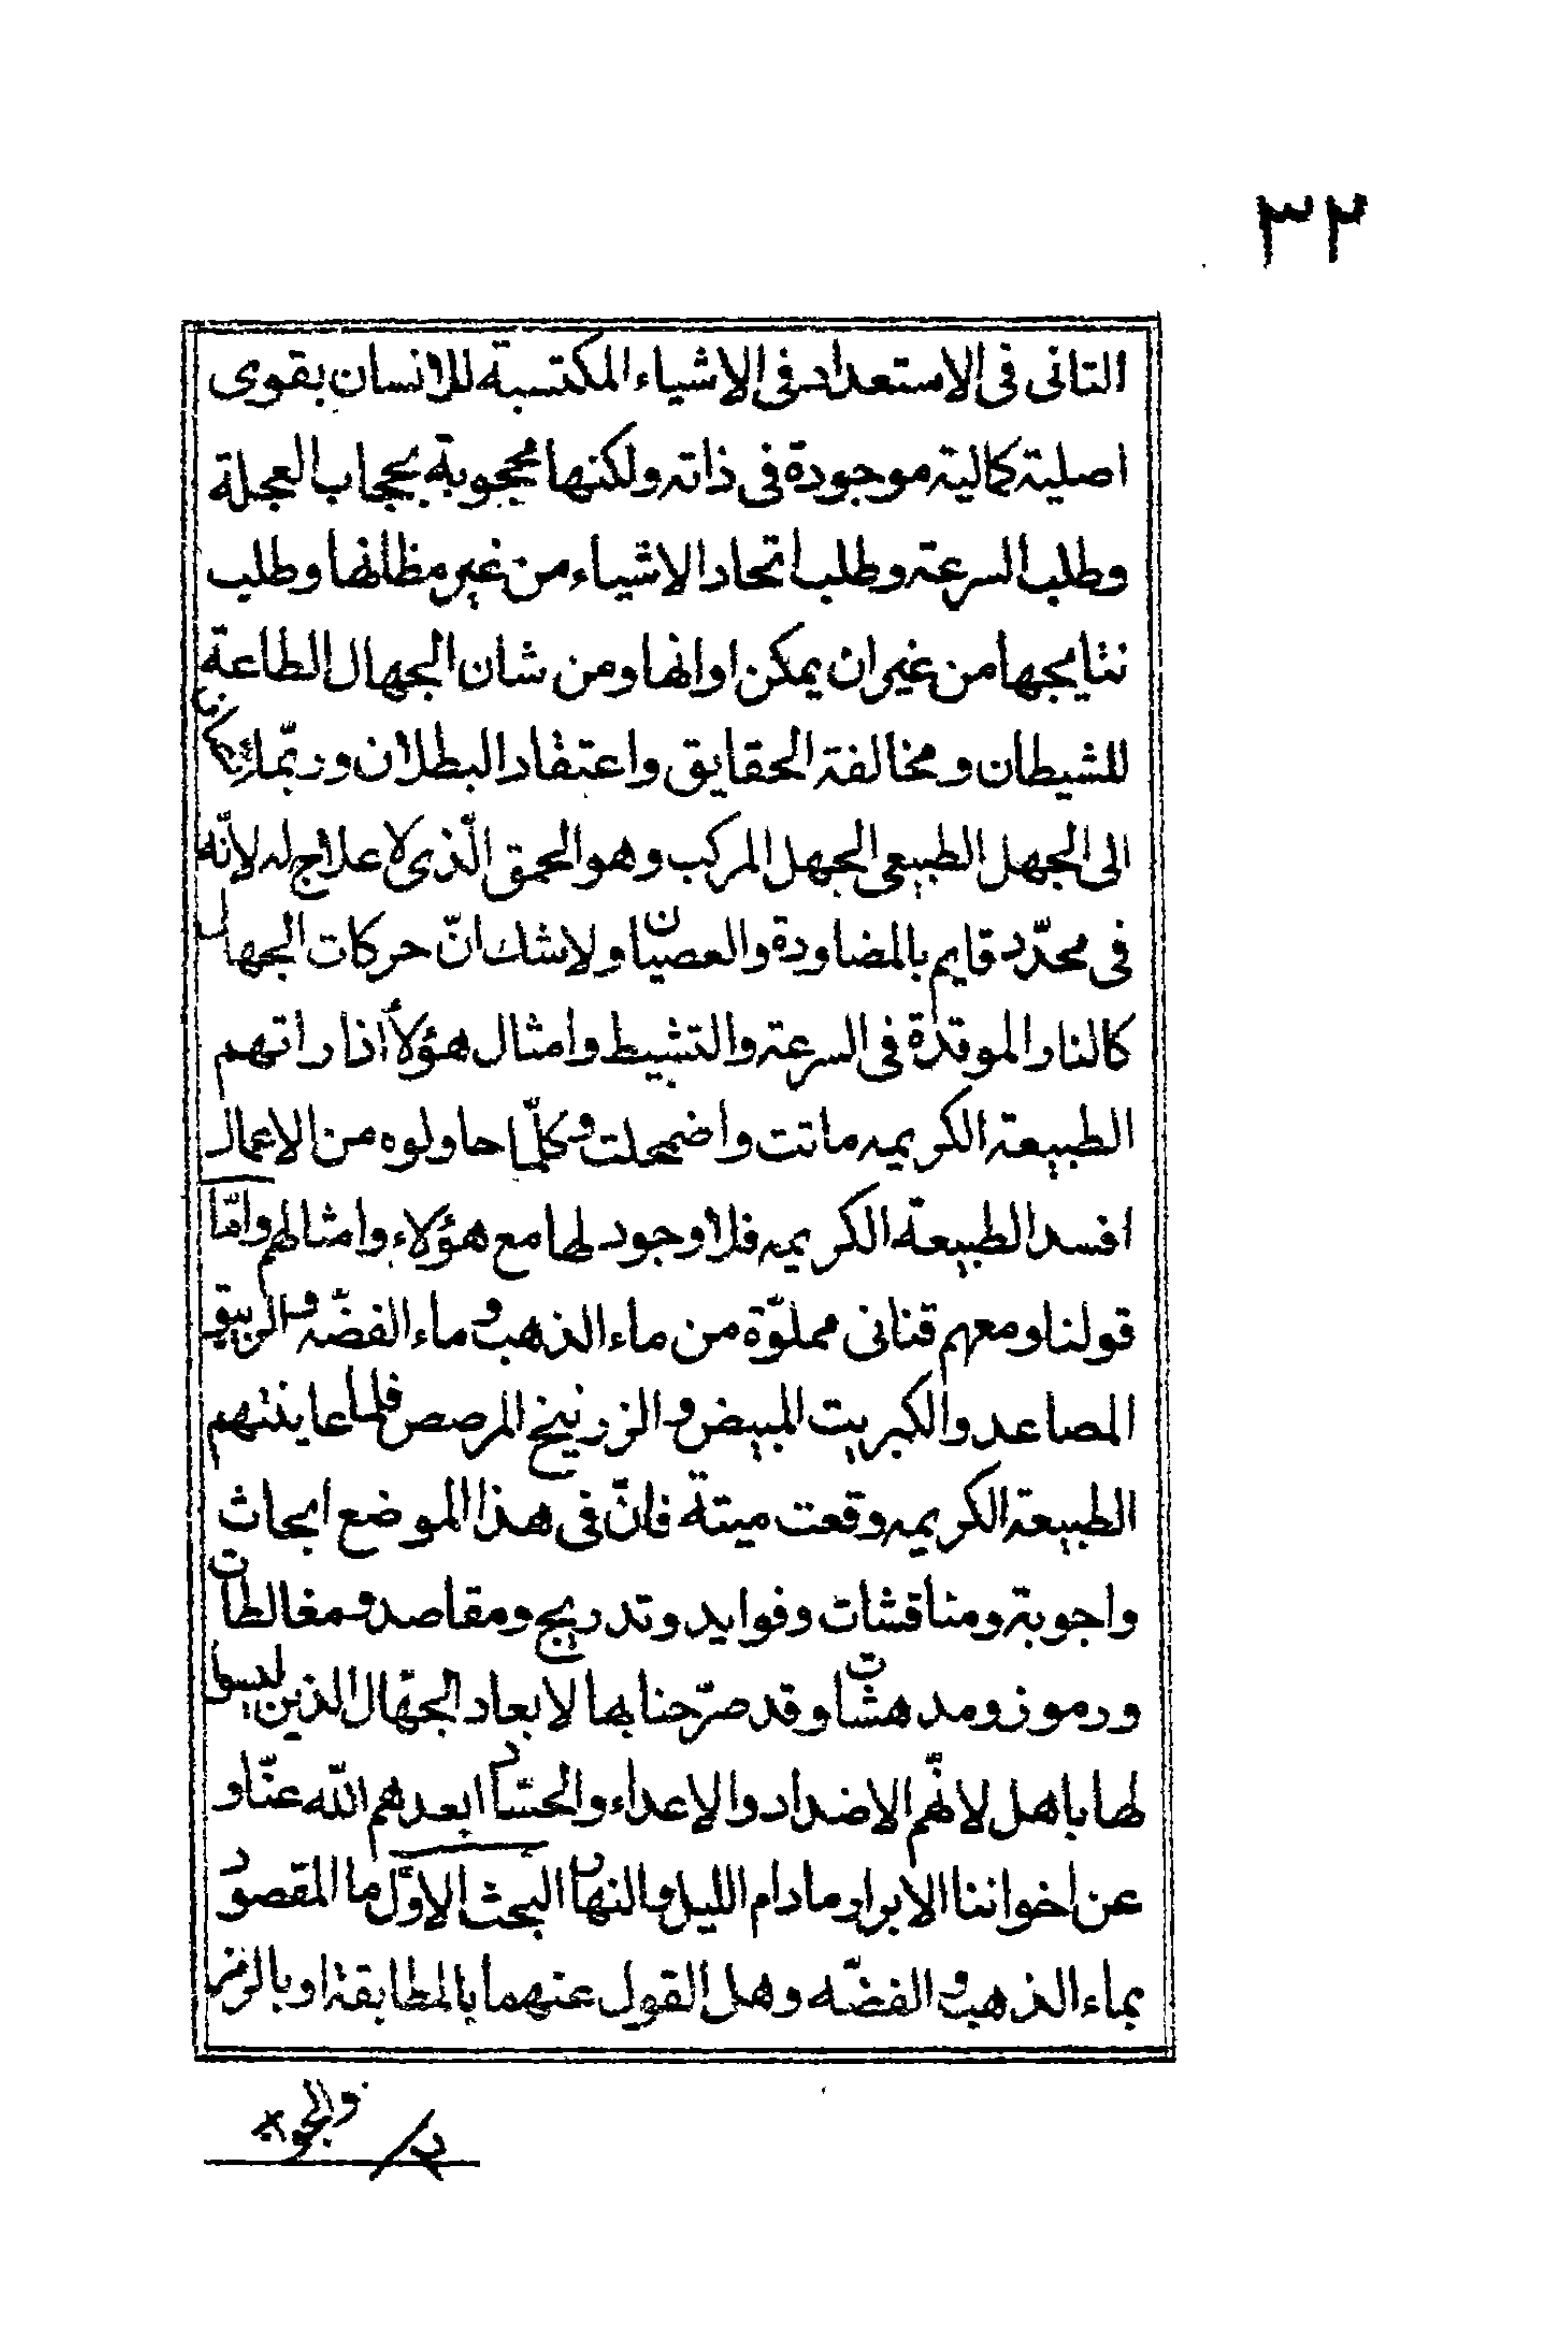 ٣٢
التانى فى الاستعداد فى الاشياء المكتسبة للانسان بقوى
اصلية كمالية موجودة فى ذاته ولكنها محجوبة بحجاب العجلة
وطلب السرعة وطلب اتحاد الاشياء من غير مظانها وطلب
نتايجها من غير ان يمكن اوانها ومن شان الجهال الطاعة
للشيطان ومخالفة الحقايق واعتقاد البطلان وربّما
الى الجهل الطبيعى الجهل المركب وهو الحمق الّذى لا علاج له لانّه
فى محدّد قايم بالمضاودة والعصيان ولا شك انّ حركات الجهال
كالنار الموقدة فى السرعة والتشيط وامثال هؤلاء اذا راتهم
الطبيعة الكريمه ماتت واضمحلت وكلّما حاولوه من الاعمال
افسد الطبيعة الكريمه فلا وجود لها مع هؤلاء وامثالهم وامّا
قولنا ومعهم قنانى مملوّة من ماء الذهب وماء الفضّه والزيبق
المصاعد والكبريت المبيض والزرنيخ المرصص فلما عاينتهم
الطبيعة الكريمه وقعت ميتة فانّ فى هذا الموضع ابحاث
واجوبة ومناقشات وفوايد وتدريج ومقاصد ومغالطات
ورموز ومدهشات وقد صرّحنا بها لابعاد الجهّال الذين ليسوا
لها باهل لانّهم الاضداد والاعداء والحسّاد ابعدهم اللّه عنّا و
عن اخواننا الابرار مادام الليل والنهار البحث الاوّل ما المقصود
بماء الذهب والفضّه وهل القول عنهما بالمطابقة او بالرمز